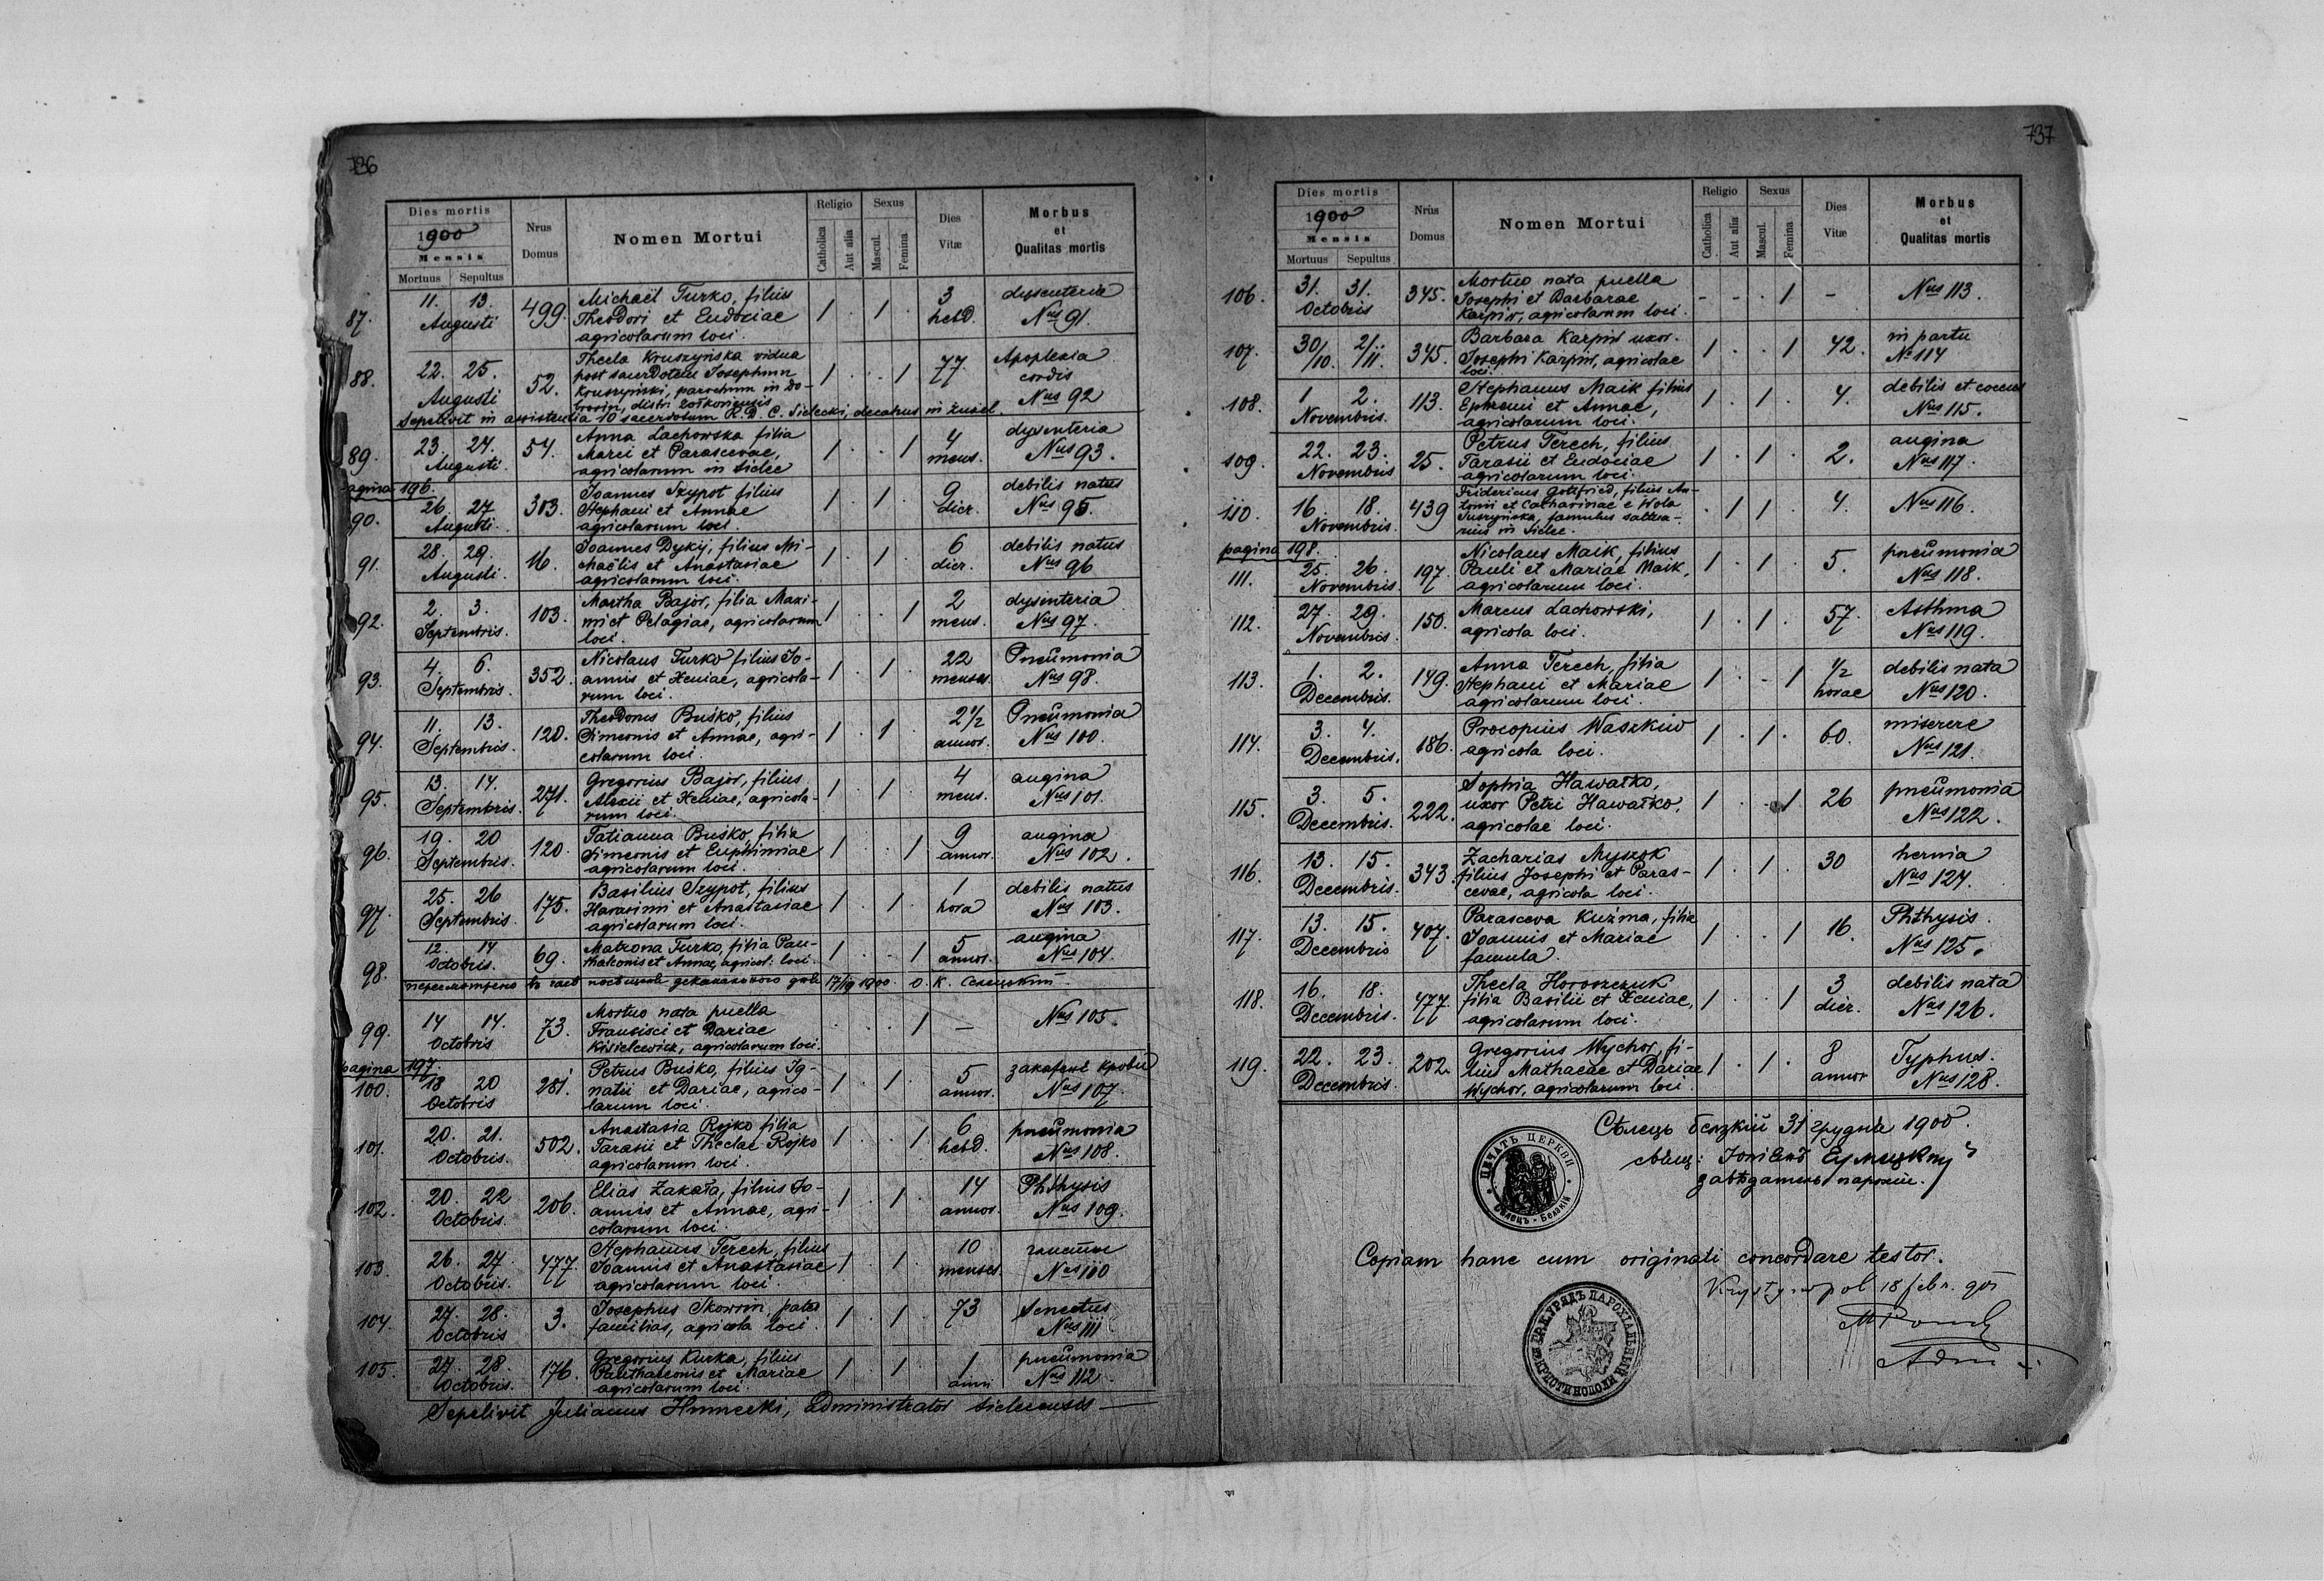 736
Dies mortis
1900
Mensis
Mortuus Sepultus
Nrus Domus
Nomen Mortui
Religio
Catholica Aut alia
Sexus
Mascul. Femina
Dies Vitæ
Morbus et Qualitas mortis
87. 11. 13. Augusti 499. Michaël Turko, filius 1 . 1 . 3 hebd. dysenteria Nus 91.
Theodori et Eudociae
agricolarum loci.
88. 22. 25. Augusti 52. Thecla Kruszyńska vidua 1 . . 1 77 Apoplexia cordis Nus 92
post sacerdotem Josephum
Kruszyński, parochum in Do-
brosin, distr. żołkoviensis
Sepelivit in assistentia 10 sacerdotum R. D. C. Sielecki, decanus in Żużel.
89. 23. 24. Augusti. 54. Anna Lachowska filia 1 . . 1 4 mens. dysenteria Nus 93.
Marci et Parascevae,
agricolarum in Sielec
pagina 196.
90. 26. 27 Augusti. 303. Joannes Szypot filius 1 . 1 . 9 dier. debilis natus Nus 95.
Stephani et Annae
agricolarum loci.
91. 28. 29. Augusti. 16. Joannes Dykij, filius Mi- 1 . 1 . 6 dier. debilis natus Nus 96
chaëlis et Anastasiae
agricolarum loci.
92. 2. 3. Septembris. 103. Martha Bajor, filia Maxi- 1 . . 1 2 mens. dysenteria Nus 97.
mi et Pelagiae, agricolarum
loci.
93. 4. 6. Septembris. 352. Nicolaus Turko filius Jo- 1 . 1 . 22 menses. Pneumonia Nus 98.
annis et Xeniae, agricola-
rum loci.
94. 11. 13. Septembris. 120. Theodorus Buśko, filius 1 . 1 . 2 1/2 annor. Pneumonia Nus 100.
Simeonis et Annae, agri-
colarum loci.
95. 13. 14. Septembris. 271. Gregorius Bajor, filius 1 . 1 . 4 mens. angina Nus 101.
Alexii et Xeniae, agricola-
rum loci.
96. 19. 20 Septembris. 120. Tatianna Buśko, filia 1 . . 1 9 annor. angina Nus 102.
Simeonis et Euphimiae
agricolarum loci.
97. 25. 26 Septembris. 175. Basilius Szypot, filius 1 . 1 . 1 hora debilis natus Nus 103.
Harasimi et Anastasiae
agricolarum loci.
98. 12. 14 Octobris. 69. Matrona Turko, filia Pan- 1 . . 1 5 annor. angina Nus 104.
thaleonis et Annae, agricol: loci.
пересмотрено въ часѣ 1900. о. К. Селецкій
99. 14 14. Octobris 73. Mortuo nata puella . . . 1 — Nus 105.
Francisci et Dariae
Kisielewicz, agricolarum loci.
pagina 197.
100. 18 20 Octobris 281. Petrus Buśko, filius Ig- 1 . 1 . 5 annor. закаженє крови Nus 107.
natii et Dariae, agrico-
larum loci.
101. 20. 21. Octobris. 502. Anastasia Rojko filia 1 . . 1 6 hebd. pneumonia Nus 108.
Tarasii et Theclae Rojko
agricolarum loci.
102. 20. 22 Octobris. 206. Elias Zakała, filius Jo- 1 . 1 . 14 annor. Phthysis Nus 109.
annis et Annae, agri-
colarum loci.
103. 26. 27. Octobris. 477. Stephanus Terech, filius 1 . 1 . 10 menses. Nus 110
Joannis et Anastasiae
agricolarum loci
104. 27. 28. Octobris 3. Josephus Skowron, pater 1 . 1 . 73 Senectus Nus 111
familias, agricola loci.
105. 27. 28. Octobris. 176. Gregorius Kurka, filius 1 . 1 . 1 anni pneumonia Nus 112
Panthaleonis et Mariae
agricolarum loci.
Sepelivit Julianus Humecki, Administrator Sielecensis
737
Dies mortis
1900
Mensis
Mortuus Sepultus
Nrus Domus
Nomen Mortui
Religio
Catholica Aut alia
Sexus
Mascul. Femina
Dies Vitæ
Morbus et Qualitas mortis
106. 31. 31. Octobris 345. Mortuo nata puella - - . 1 - Nus 113.
Josephi et Barbarae
Karpiw, agricolarum loci.
107. 30/10. 2/11. 345. Barbara Karpiw uxor. 1 . . 1 42. in partu No 114
Josephi Karpiw, agricolae
loci.
108. 1 2. Novembris. 113. Stephanus Maik filius 1 . 1 . 4. debilis et coecus Nus 115.
Ephremi et Annae,
agricolarum loci.
109. 22. 23. Novembris 25. Petrus Terech, filius 1 . 1 . 2. angina Nus 117.
Tarasii et Eudociae
agricolarum loci.
110. 16. 18. Novembris. 439 Fridericus Gottfried, filius An- . 1 1 . 4. Nus 116.
tonii et Catharinae e Hola
famulus saltua-
rius in Sielec.
pagina 198.
111. 25. 26. Novembris. 197. Nicolaus Maik, filius 1 . 1 . 5. pneumonia Nus 118.
Pauli et Mariae Maik,
agricolarum loci.
112. 27. 29. Novembris. 150. Marcus Lachowski, 1 . 1 . 57. Asthma Nus 119.
agricola loci.
113. 1. 2. Decembris. 149. Anna Terech, filia 1 . . 1 1/2 horae debilis nata Nus 120.
Stephani et Mariae
agricolarum loci.
114. 3. 4. Decembris. 186. Procopius Waszkiw 1 . 1 . 60. miserere Nus 121.
agricola loci.
115. 3. 5. Decembris. 222. Sophia Hawałko, 1 . . 1 26 pneumonia Nus 122.
uxor Petri Hawałko,
agricolae loci.
116. 13. 15. Decembris. 343. Zacharias Myszok 1 . 1 . 30 hernia Nus 124.
filius Josephi et Paras-
cevae, agricola loci.
117. 13. 15. Decembris 407. Parasceva Kuźma, filia 1 . . 1 16. Phthysis. Nus 125.
Joannis et Mariae
famula.
118. 16. 18. Decembris. 477. Thecla Horoszczuk 1 . . 1 3 dier. debilis nata Nus 126.
filia Basilii et Xeniae,
agricolarum loci.
119. 22. 23. Decembris. 202. Gregorius Wychor, fi- 1 . 1 . 8 annor Typhus. Nus 128.
lius Mathaeae et Dariae
Wychor, agricolarum loci.
Сѣлець белзкий 31 грудня 1900.
завѣдатель парохіи.
ПЕЧАТЬ ЦЕРКВИ
Селецъ - Белзкій
Copiam hanc cum originali concordare testor.
Krystynopol 18 febr. 901